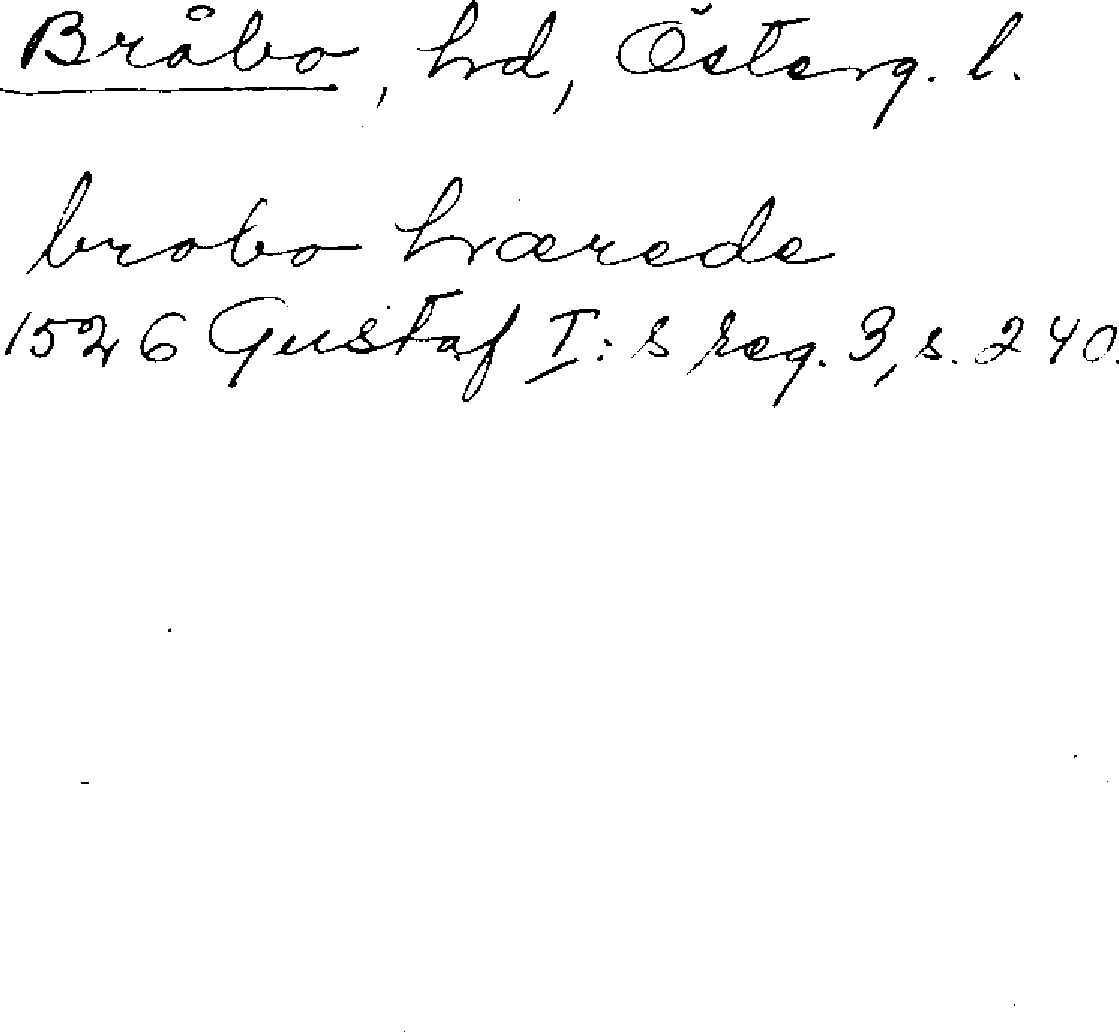 Bråbo, hd, Österg. l.
brobo hærede
1526 Gustaf I:s reg. 3, s. 240.